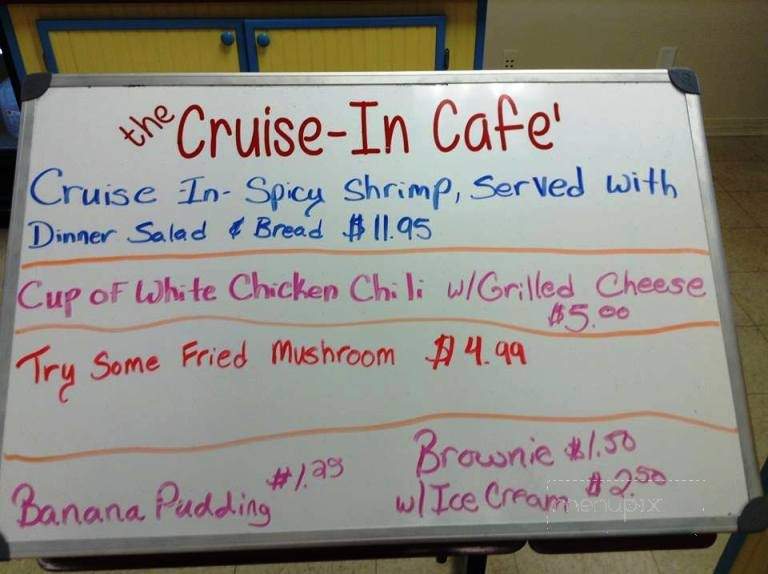 the Cruise-In Cafe'
Cruise In- Spicy Shrimp, Served with
Dinner Salad & Bread $11.95
Cup of White Chicken Chili w/Grilled Cheese
$5.00
Try Some Fried Mushroom $4.99
Brownie $1.50
w/Ice Cream $2.50
Banana Pudding $1.25
menupix